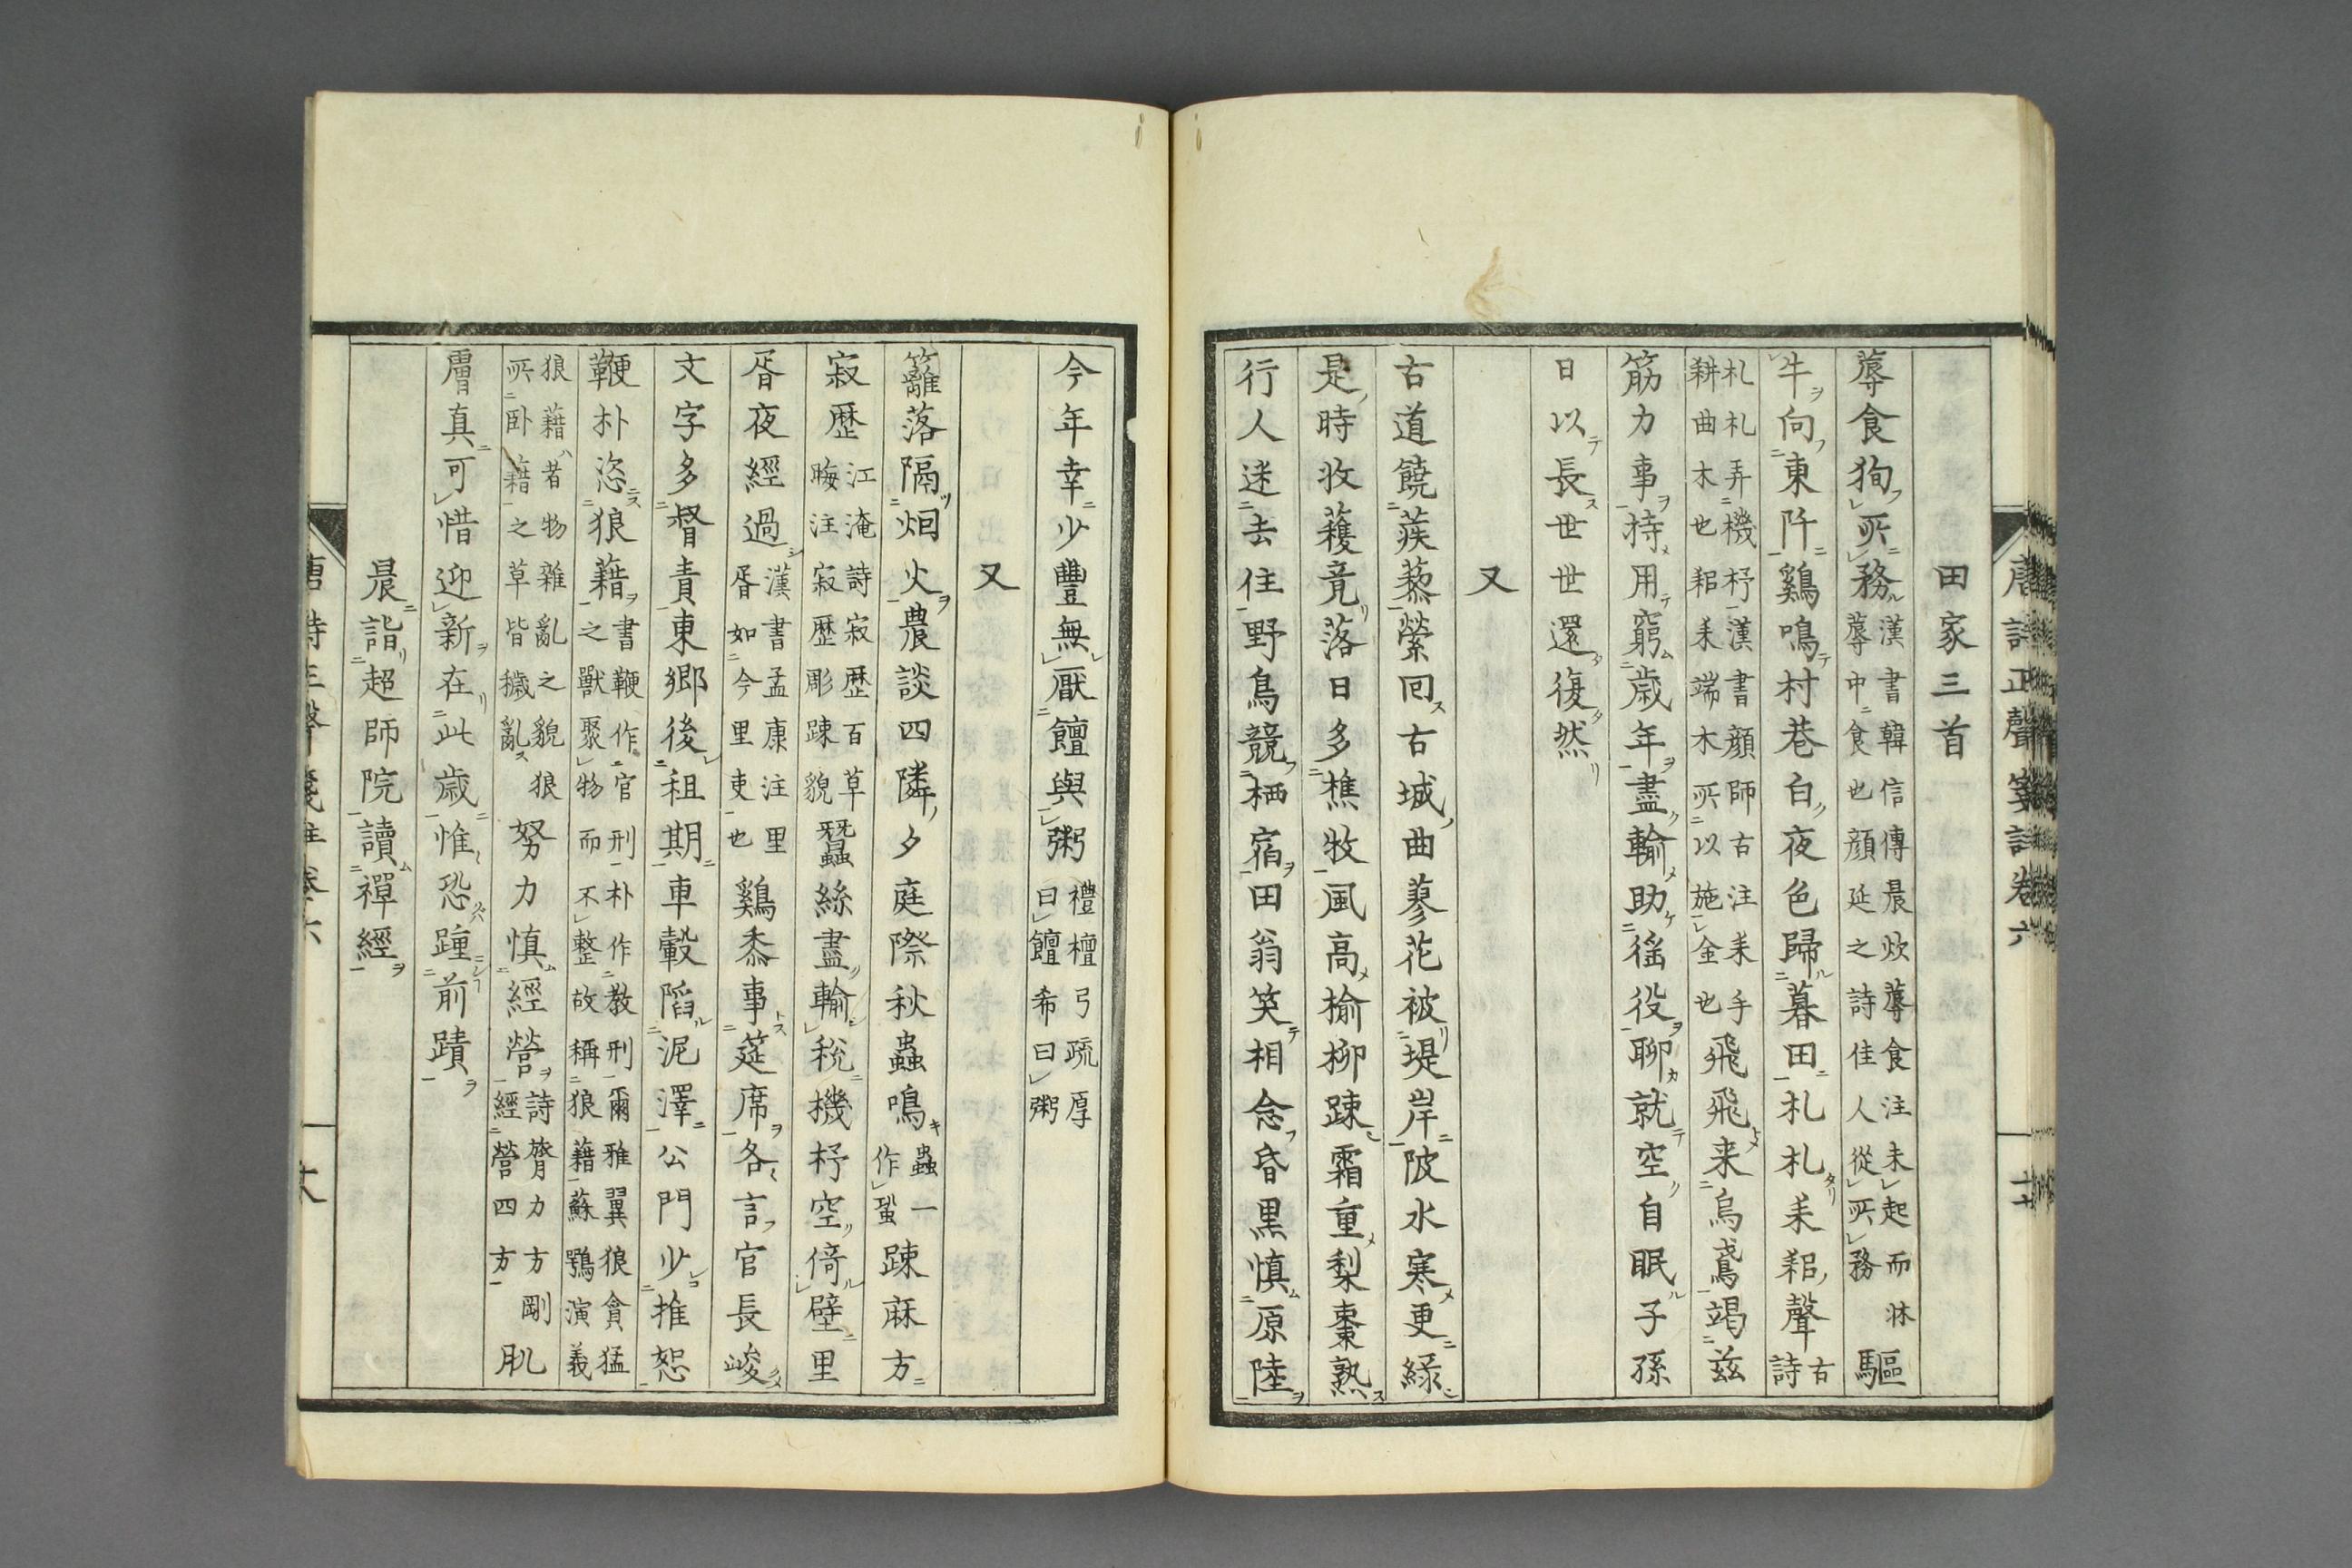 田家三首
蓐食狥所務漢書韓信傳晨炊蓐食注未起而牀蓐中食也顔延之詩佳人從所務驅
牛向東阡鷄鳴村巷白夜色歸暮田札札耒耜聲古詩
札札弄機杼漢書顔師古注耒手耕曲木也耜耒端木所以施金也飛飛来烏鳶竭茲
筋力事持用窮歳年盡輸助徭役聊就空自眠子孫
日以長世世還復然
又
古道饒蒺藜縈囘古城曲蓼花被堤岸陂水寒更緑
是時收穫竟落日多樵牧風高榆柳踈霜重梨棗熟
行人迷去住野鳥競栖宿田翁笑相念昏黒慎原陸
今年幸少豐無厭饘與粥禮檀弓疏厚曰饘希曰粥
又
籬落隔烟火農談四隣夕庭際秋蟲鳴蟲一作蛩踈麻方
寂歴江淹詩寂歴百草晦注寂歴彫踈貌蠶絲盡輸税機杼空倚壁里
胥夜經過漢書孟康注里胥如今里吏也鷄黍事筵席各言官長峻
文字多督責東郷後租期車轂陷泥澤公門少推恕
鞭朴恣狼藉之漢書鞭作官刑朴作教刑爾雅翼狼貪猛獸聚物而不整故稱狼藉蘇鶚演義
狼藉者物雜亂之貌狼所卧藉之草皆穢亂努力慎經營詩膂力方剛經營四方肌
膚真可惜迎新在此歳惟恐踵前蹟
晨詣超師院讀禪經
唐詩正聲箋註卷六